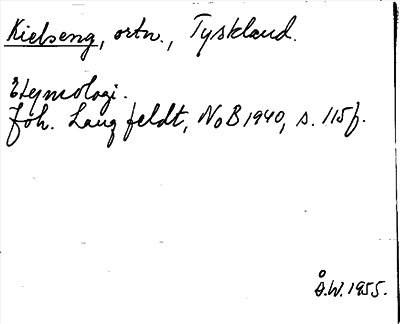 Kielseng, ortn., Tyskland.
Etymologi.
Joh. Langfeldt, NoB 1940, s. 115f.
Å.W. 1955.